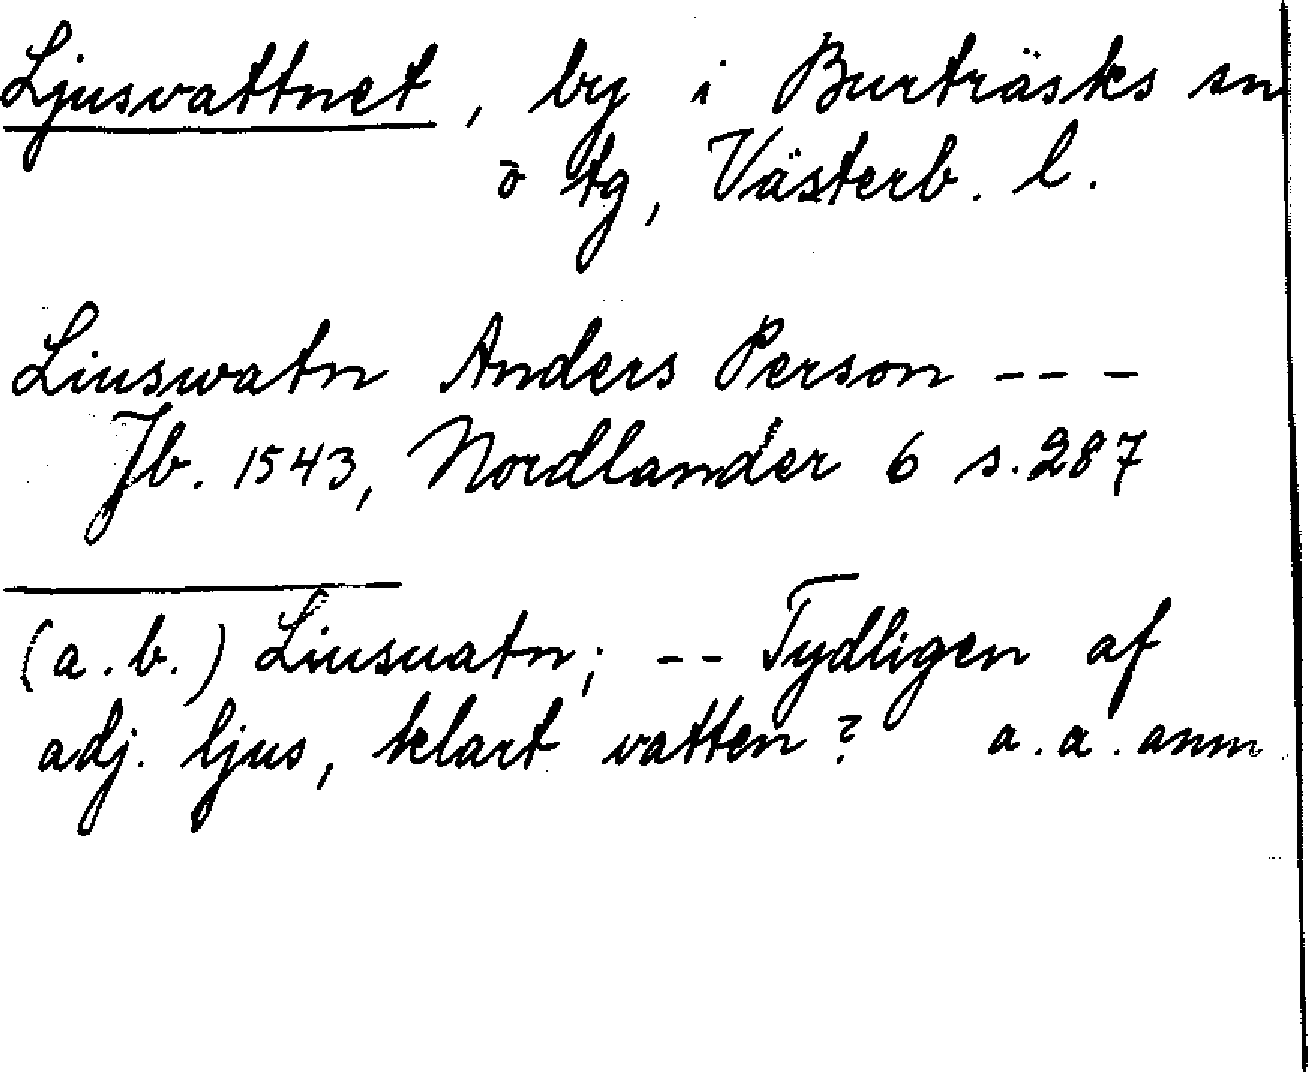 Ljusvattnet, by i Burträsks sn
o tg, Västerb. l.
Liuswatn Anders Person ---
Jb. 1543, Nordlander 6 s. 287
(a. b.) Liusuatn; -- Tydligen af
adj. ljus, klart vatten? a. a. anm.